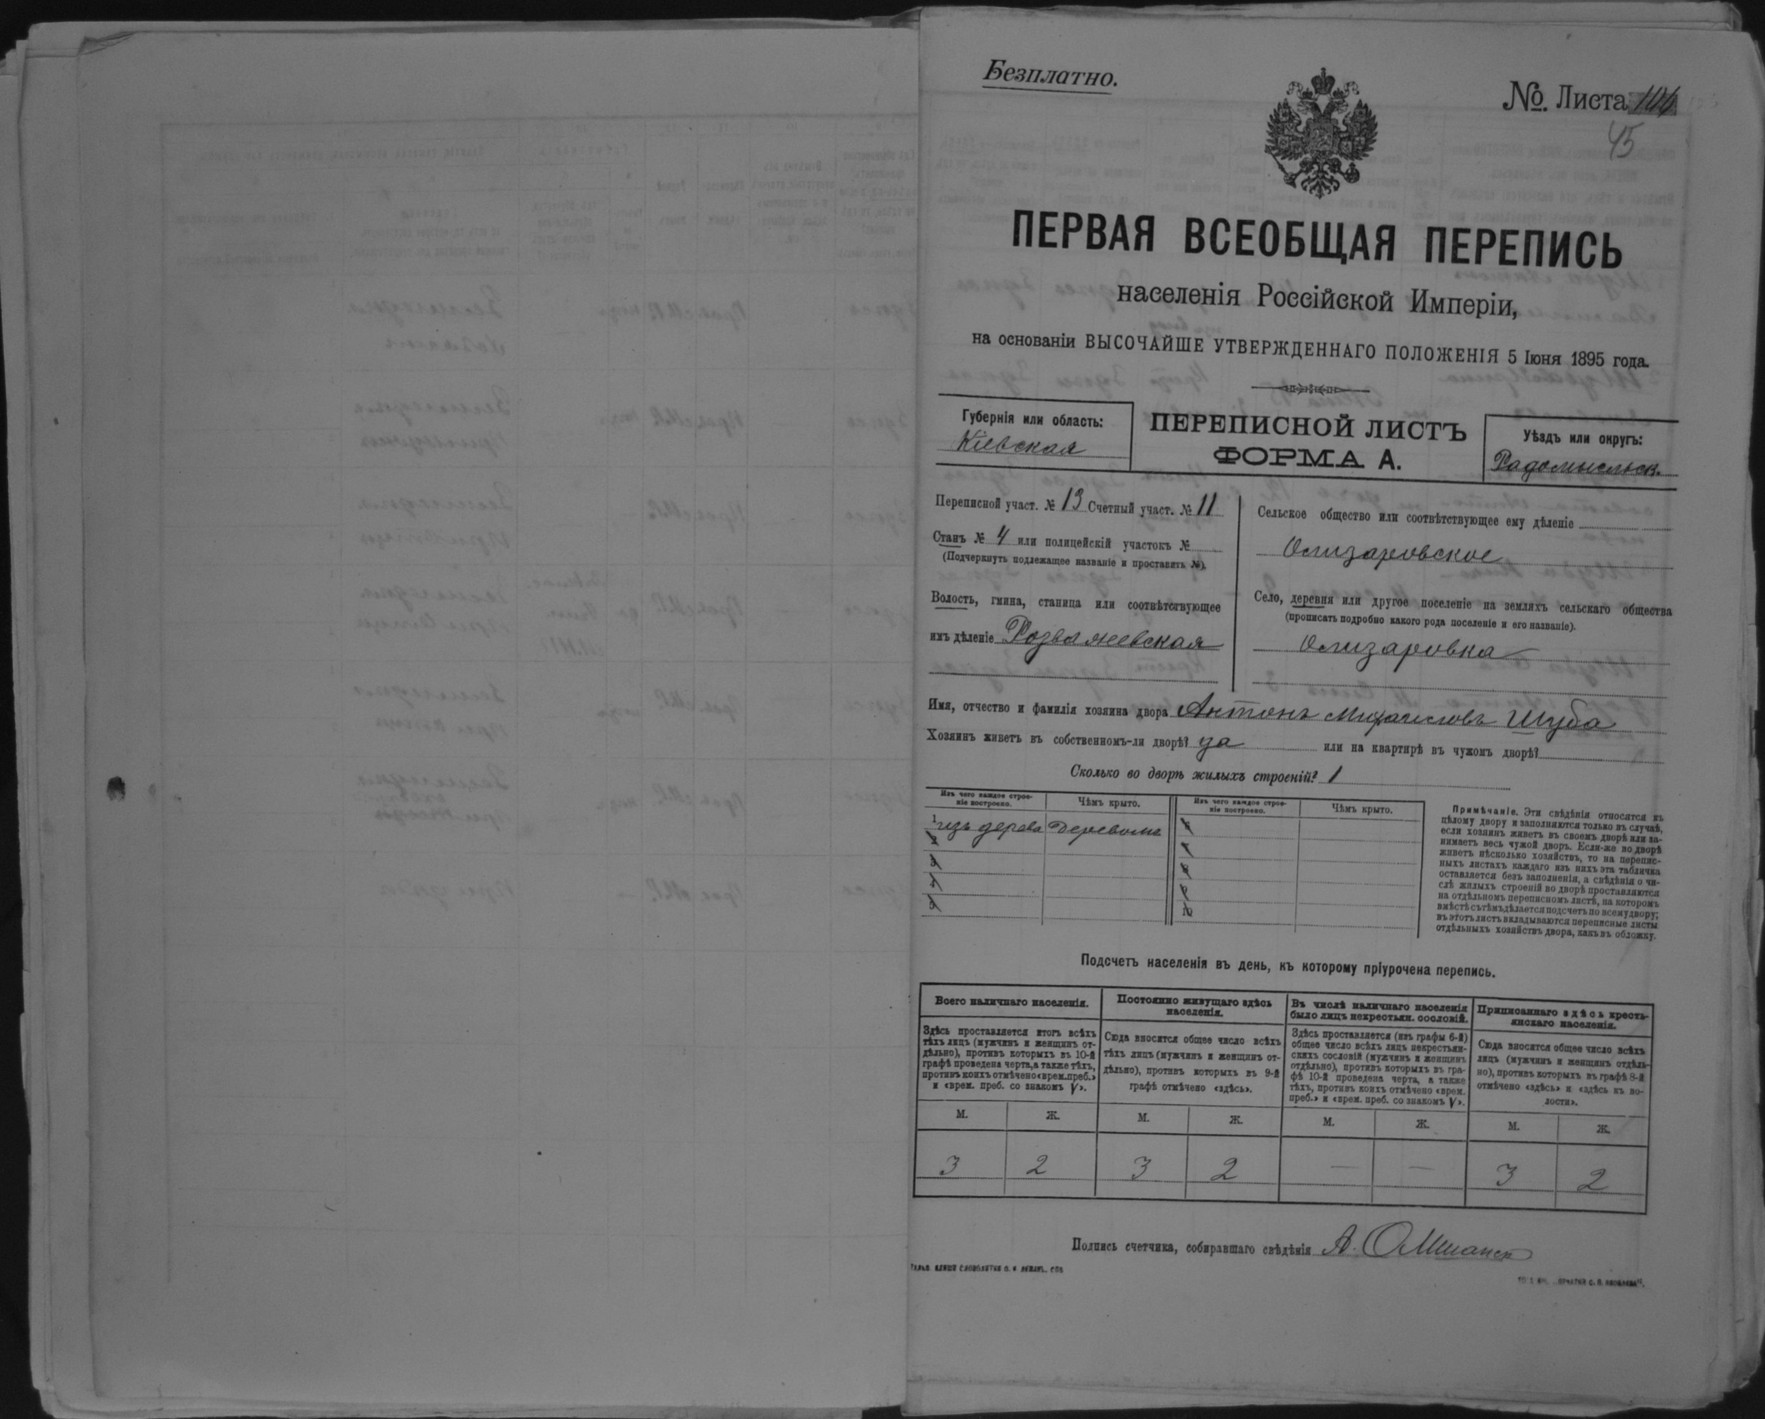 Безплатно.
№ Листа
45
ПЕРВАЯ ВСЕОБЩАЯ ПЕРЕПИСЬ
населенія Россійской Имперіи,
на основаніи ВЫСОЧАЙШЕ УТВЕРЖДЕННАГО ПОЛОЖЕНІЯ 5 Іюня 1895 года.
Губернія или область:
Кіевская
ПЕРЕПИСНОЙ ЛИСТЪ
ФОРМА А.
Уѣздъ или округъ:
Радомысльск.
Переписной участ. № 13 Счетный участ. № 11
Станъ № 4 или полицейскій участокъ №
(Подчеркнуть подлежащее названіе и проставить №).
Волость, гмина, станица или соотвѣтствующее
имъ дѣленіе Розважевская
Сельское общество или соотвѣтствующее ему дѣленіе
Олизаровское
Село, деревня или другое поселеніе на земляхъ сельскаго общества
(прописать подробно какого рода поселеніе и его названіе).
Олизаровка
Имя, отчество и фамилія хозяина двора Антонъ Михайловъ Шуба
Хозяинъ живетъ въ собственномъ-ли дворѣ? да или на квартирѣ въ чужомъ дворѣ?
Сколько во дворѣ жилыхъ строеній? 1
Изъ чего каждое строе-
ніе построено.
Чѣмъ крыто.
Изъ чего каждое строе-
ніе построено.
Чѣмъ крыто.
1 изъ дерева деревомъ
Примѣчаніе. Эти свѣдѣнія относятся къ
цѣлому двору и заполняются только въ случаѣ,
если хозяинъ живетъ въ своемъ дворѣ или за-
нимаетъ весь чужой дворъ. Если-же во дворѣ
живетъ нѣсколько хозяйствъ, то на перепис-
ныхъ листахъ каждаго изъ нихъ эта табличка
оставляется безъ заполненія, а свѣдѣнія о чи-
слѣ жилыхъ строеній во дворѣ проставляются
на отдѣльномъ переписномъ листѣ, на которомъ
вмѣстѣ съ тѣмъ дѣлается подсчетъ по всему двору;
въ этотъ листъ вкладываются переписные листы
отдѣльныхъ хозяйствъ двора, какъ въ обложку.
Подсчетъ населенія въ день, къ которому пріурочена перепись.
Всего наличнаго населенія.
Здѣсь проставляется итогъ всѣхъ
тѣхъ лицъ (мужчинъ и женщинъ от-
дѣльно), противъ которыхъ въ 10-й
графѣ проведена черта, а также тѣхъ,
противъ коихъ отмѣчено «врем. преб.»
и «врем. преб. со знакомъ V».
Постоянно живущаго здѣсь
населенія.
Сюда вносится общее число всѣхъ
тѣхъ лицъ (мужчинъ и женщинъ от-
дѣльно), противъ которыхъ въ 9-й
графѣ отмѣчено «здѣсь».
Въ числѣ наличнаго населенія
было лицъ некрестьян. сословій.
Здѣсь проставляется (изъ графы 6-й)
общее число всѣхъ лицъ некрестьян-
скихъ сословій (мужчинъ и женщинъ
отдѣльно), противъ которыхъ въ гра-
фѣ 10-й проведена черта, а также
тѣхъ, противъ коихъ отмѣчено «врем.
преб.» и «врем. преб. со знакомъ V».
Приписаннаго здѣсь кресть-
янскаго населенія.
Сюда вносится общее число всѣхъ
лицъ (мужчинъ и женщинъ отдѣль-
но), противъ которыхъ въ графѣ 8-й
отмѣчено «здѣсь» и «здѣсь къ во-
лости».
М. Ж. М. Ж. М. Ж. М. Ж.
3 2 3 2 — — 3 2
Подпись счетчика, собиравшаго свѣдѣнія А.